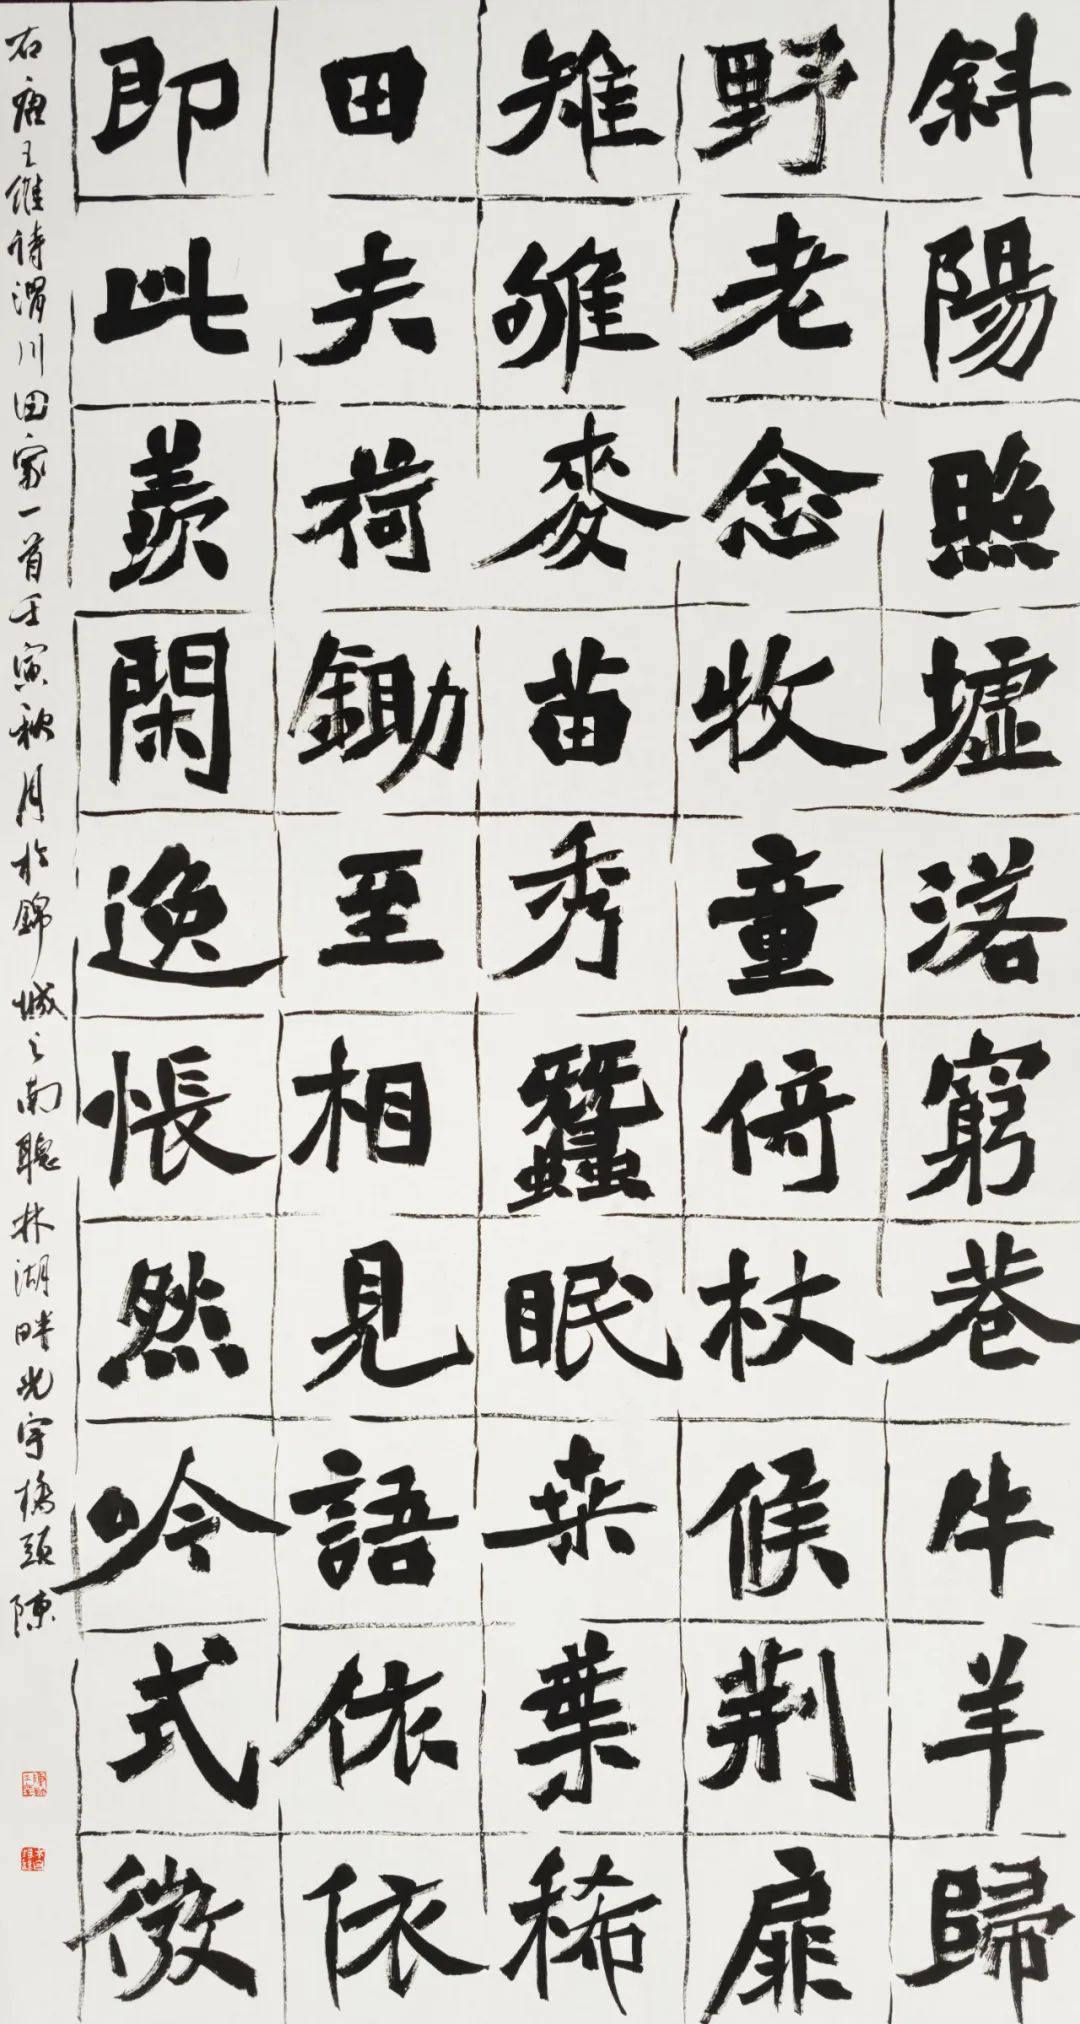 斜陽照墟落窮巷牛羊歸
野老念牧童倚杖候荆扉
雉雊麥苗秀蠶眠桒葉稀
田夫荷鋤至相見語依依
即此羨閑逸悵然吟式微
右唐王維詩渭川田家一首壬寅秋月於錦城之南聽林湖畔光宇橋頭陳